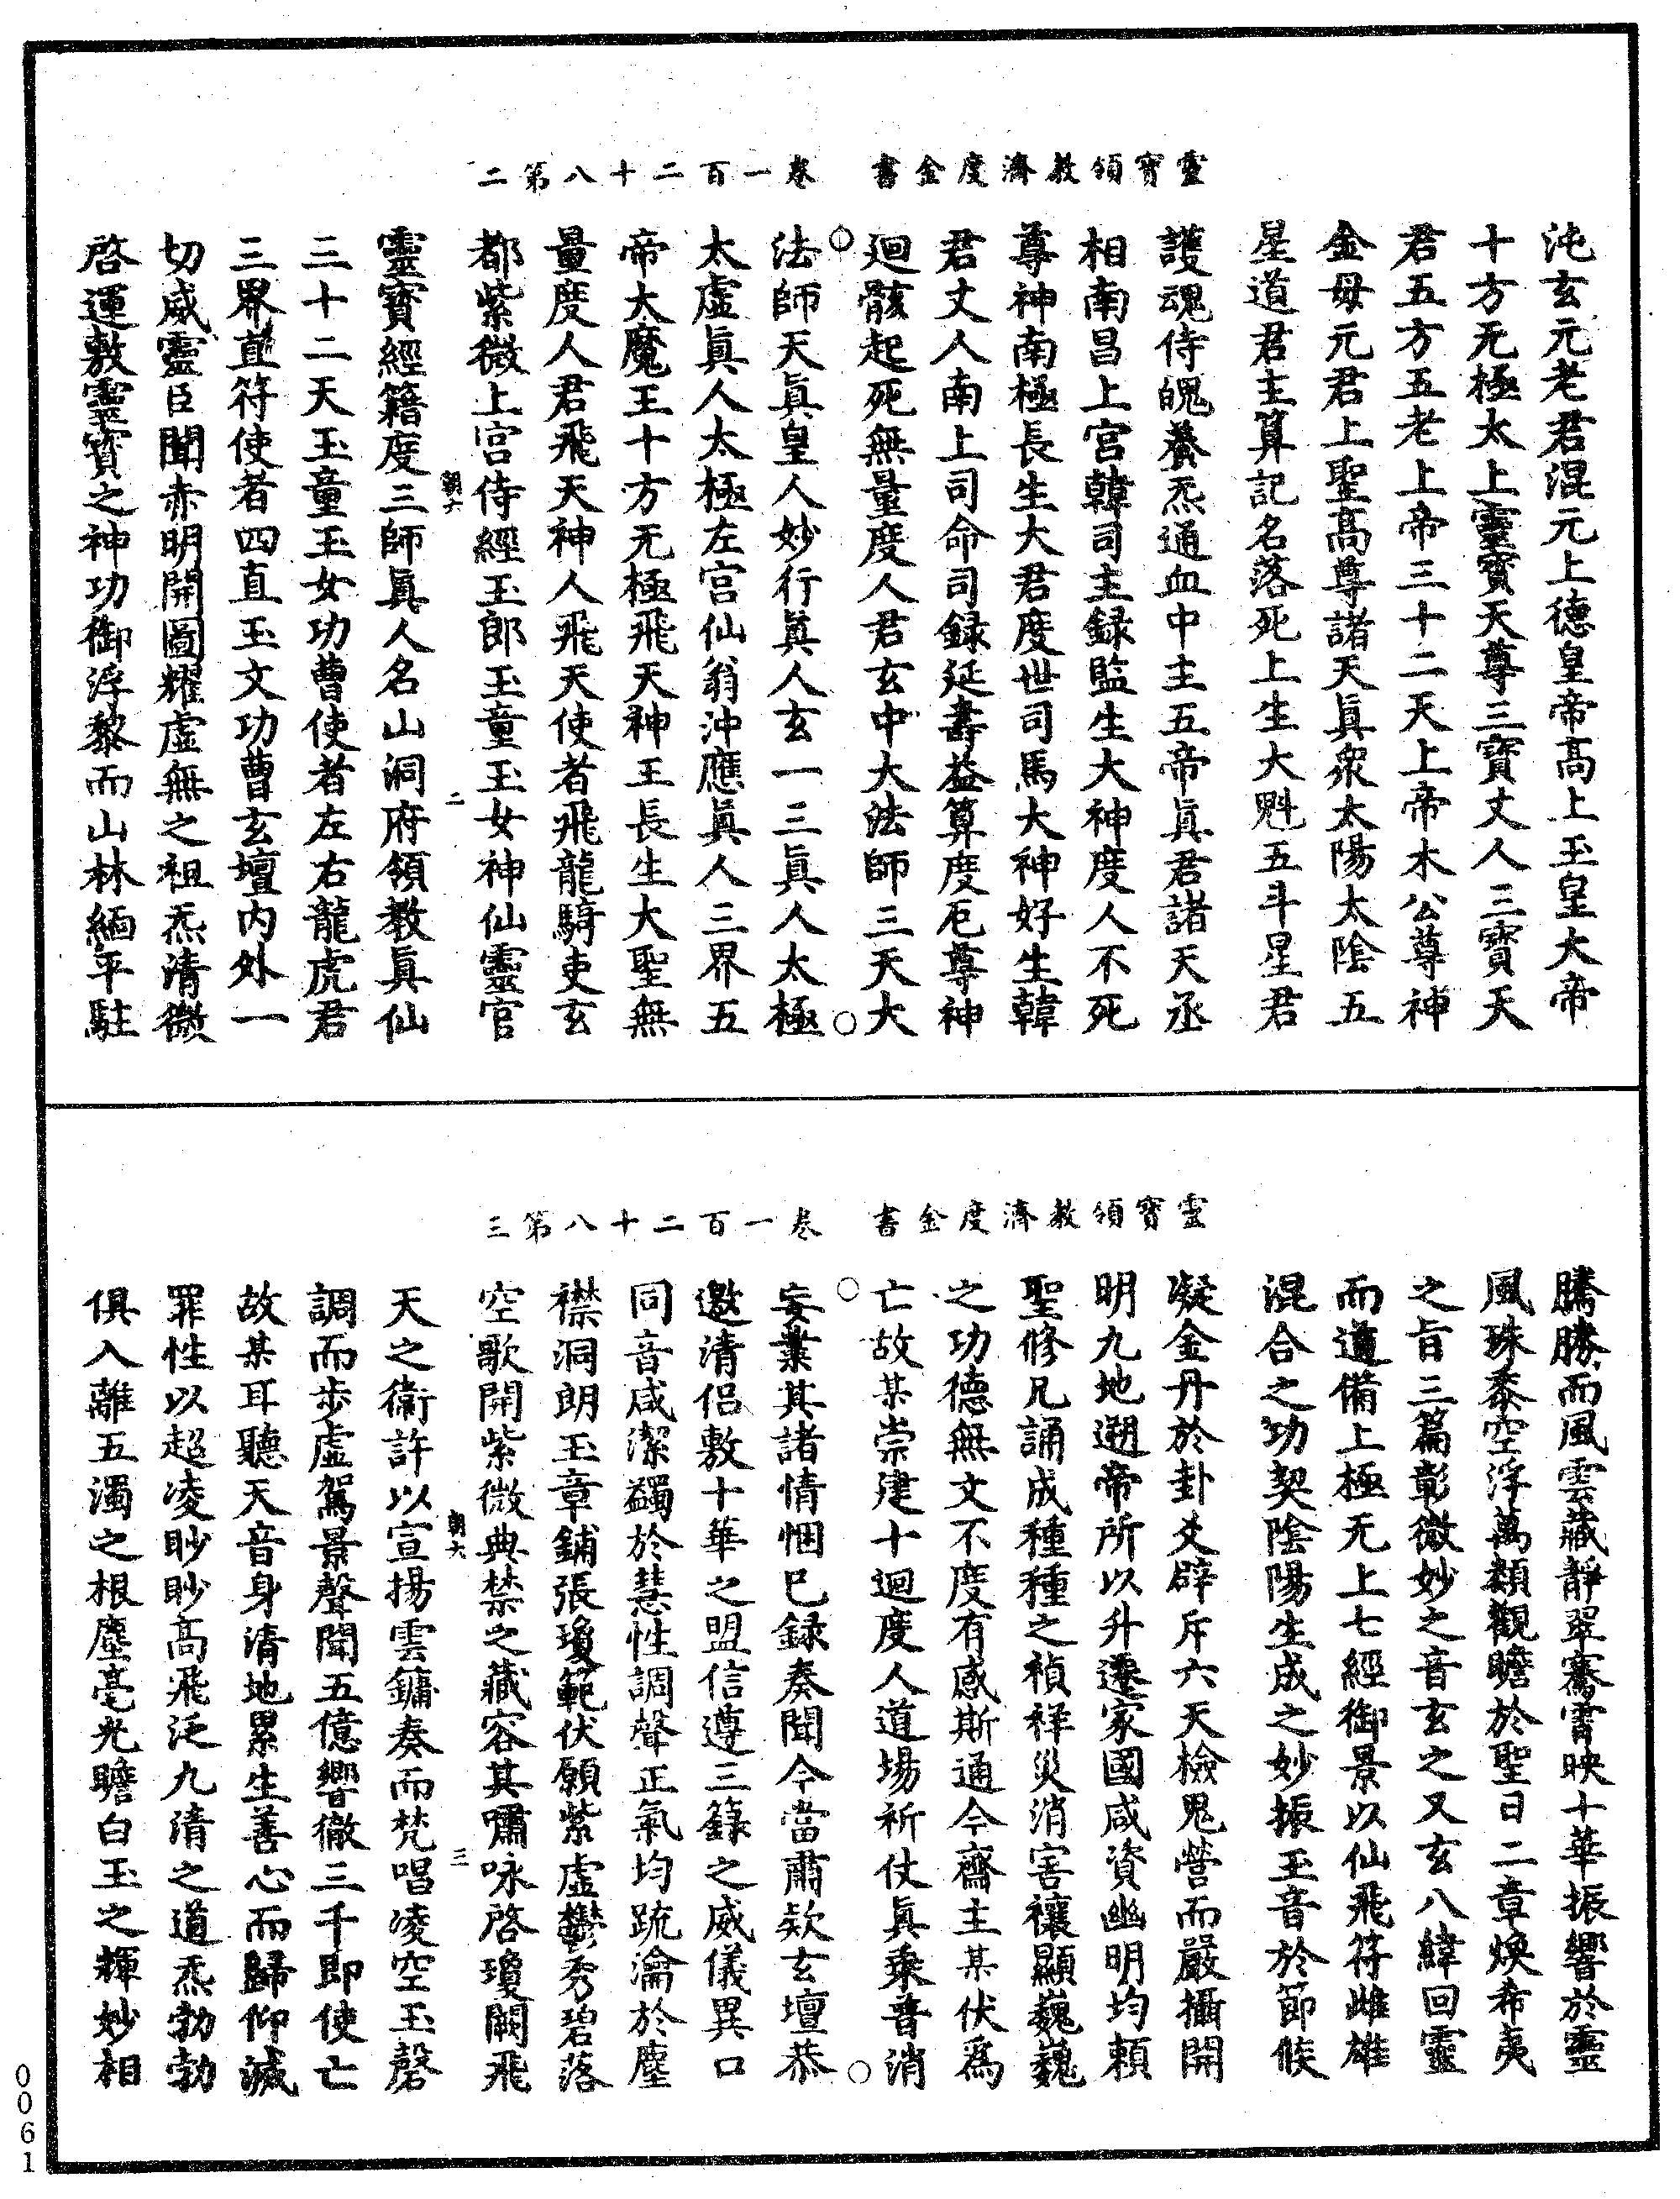 靈寶領教濟度金書　卷一百二十八第二
沌玄元老君混元上德皇帝高上玉皇大帝
十方无極太上靈寶天尊三寶丈人三寶天
君五方五老上帝三十二天上帝木公尊神
金母元君上聖高尊諸天眞衆太陽太陰五
星道君主算記名落死上生大魁五斗星君
護魂侍魄養炁通血中主五帝眞君諸天丞
相南昌上宮韓司主録監生大神度人不死
尊神南極長生大君度世司馬大神好生韓
君丈人南上司命司録延壽益算度厄尊神
廻骸起死無量度人君玄中大法師三天大
法師天眞皇人妙行眞人玄一三眞人太極
太虛眞人太極左宮仙翁沖應眞人三界五
帝大魔王十方无極飛天神王長生大聖無
量度人君飛天神人飛天使者飛龍騎吏玄
都紫微上宮侍經玉郎玉童玉女神仙靈官
朝六　二
靈寶經籍度三師眞人名山洞府領教眞仙
三十二天玉童玉女功曹使者左右龍虎君
三界直符使者四直玉文功曹玄壇內外一
切威靈臣聞赤明開圖耀虛無之祖炁清微
啓運敷靈寶之神功御浮黎而山林緬平駐
靈寶領教濟度金書　卷一百二十八第三
騰勝而風雲藏靜翠騫霄映十華振響於靈
風珠黍空浮萬類觀瞻於聖日二章煥希夷
之旨三篇彰微妙之音玄之又玄八緯回靈
而道備上極无上七經御景以仙飛符雌雄
混合之功契陰陽生成之妙振玉音於節候
凝金丹於卦爻辟斥六天檢鬼營而嚴攝開
明九地遡帝所以升遷家國咸資幽明均賴
聖修凡誦成種種之禎祥災消害禳顯巍巍
之功德無文不度有感斯通今齋主某伏爲
亡故某崇建十迴度人道場祈仗眞乘普消
妄業其諸情悃已録奏聞今當肅款玄壇恭
邀清侶敷十華之盟信遵三籙之威儀異口
同音咸潔蠲於慧性調聲正氣均疏瀹於塵
襟洞朗玉章鋪張瓊範伏願紫虛鬱秀碧落
空歌開紫微典禁之藏容其嘯咏啓瓊闕飛
朝六　三
天之衞許以宣揚雲鏞奏而梵唱凌空玉磬
調而步虛駕景聲聞五億響徹三千即使亡
故某耳聽天音身清地累生善心而歸仰滅
罪性以超凌眇眇高飛泛九清之道炁勃勃
俱入離五濁之根塵毫光瞻白玉之輝妙相
0061